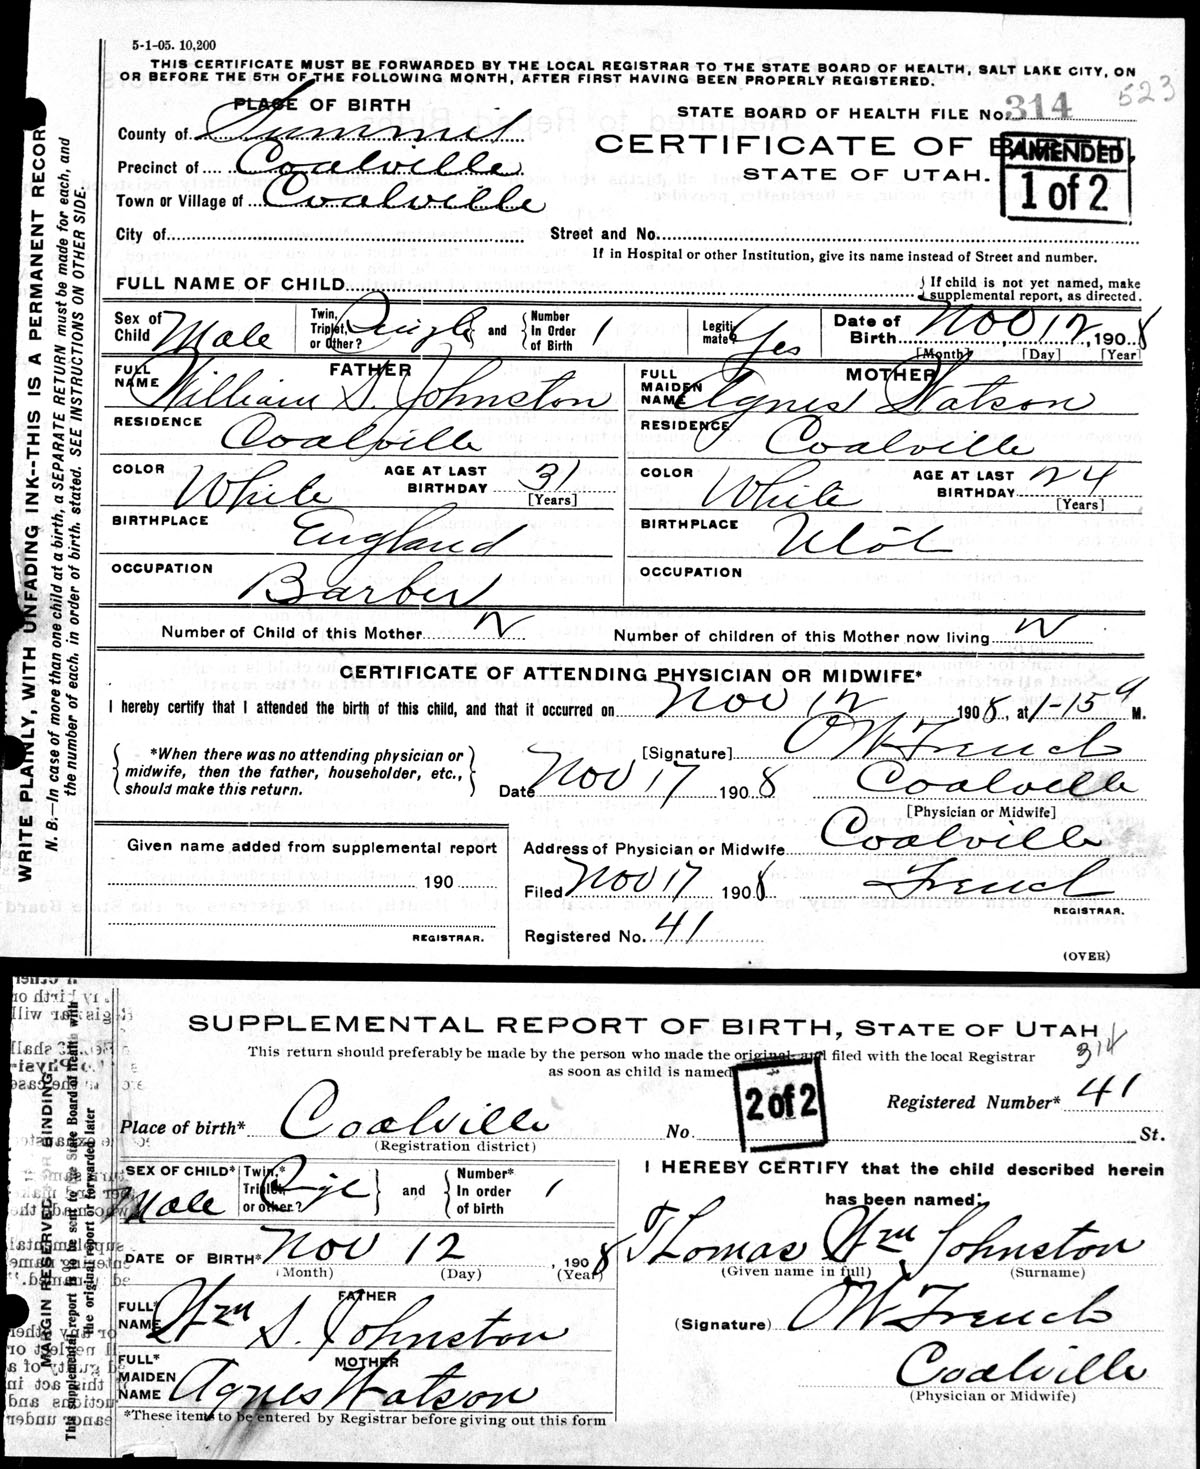 5-1-05. 10,200
THIS CERTIFICATE MUST BE FORWARDED BY THE LOCAL REGISTRAR TO THE STATE BOARD OF HEALTH, SALT LAKE CITY, ON
OR BEFORE THE 5TH OF THE FOLLOWING MONTH, AFTER FIRST HAVING BEEN PROPERLY REGISTERED.
523
PLACE OF BIRTH
STATE BOARD OF HEALTH FILE No. 314
County of Summit
CERTIFICATE OF
AMENDED
1 of 2
Precinct of Coalville
STATE OF UTAH.
Town or Village of Coalville
City of Street and No.
If in Hospital or other Institution, give its name instead of Street and number.
FULL NAME OF CHILD
If child is not yet named, make
supplemental report, as directed.
Sex of Child Male
Twin, Triplet, or other? Single and Number In Order of Birth 1
Legitimate? Yes
Date of Birth Nov 12, 1908
[Month] [Day] [Year]
FATHER
FULL NAME William S. Johnston
MOTHER
FULL MAIDEN NAME Agnes Watson
RESIDENCE Coalville
RESIDENCE Coalville
COLOR White AGE AT LAST BIRTHDAY 31 [Years]
COLOR White AGE AT LAST BIRTHDAY 24 [Years]
BIRTHPLACE England
BIRTHPLACE Utah
OCCUPATION Barber
OCCUPATION
Number of Child of this Mother 2 Number of children of this Mother now living 2
CERTIFICATE OF ATTENDING PHYSICIAN OR MIDWIFE*
I hereby certify that I attended the birth of this child, and that it occurred on Nov 12 1908, at 1-15 a M.
*When there was no attending physician or
midwife, then the father, householder, etc.,
should make this return.
[Signature] OW French
Date Nov 17 1908 Coalville
[Physician or Midwife]
Given name added from supplemental report
190
REGISTRAR.
Address of Physician or Midwife Coalville
Filed Nov 17 1908 French
REGISTRAR.
Registered No. 41
(OVER)
WRITE PLAINLY, WITH UNFADING INK--THIS IS A PERMANENT RECORD
N. B.—In case of more than one child at a birth, a SEPARATE RETURN must be made for each, and
the number of each, in order of birth, stated. SEE INSTRUCTIONS ON OTHER SIDE.
SUPPLEMENTAL REPORT OF BIRTH, STATE OF UTAH
This return should preferably be made by the person who made the original and filed with the local Registrar
as soon as child is named
314
2 of 2
Registered Number* 41
Place of birth* Coalville No. St.
(Registration district)
SEX OF CHILD* Male
Twin,* Triplet, or other? and Number* In order of birth 1
I HEREBY CERTIFY that the child described herein
has been named:
DATE OF BIRTH* Nov 12, 1908
(Month) (Day) (Year)
Thomas Wm Johnston
(Given name in full) (Surname)
FATHER
FULL* NAME Wm S. Johnston
(Signature) OW French
MOTHER
FULL* MAIDEN NAME Agnes Watson
Coalville
(Physician or Midwife)
*These items to be entered by Registrar before giving out this form
MARGIN RESERVED FOR BINDING
This supplemental report is to be sent to the State Board of Health with
the original report or forwarded later